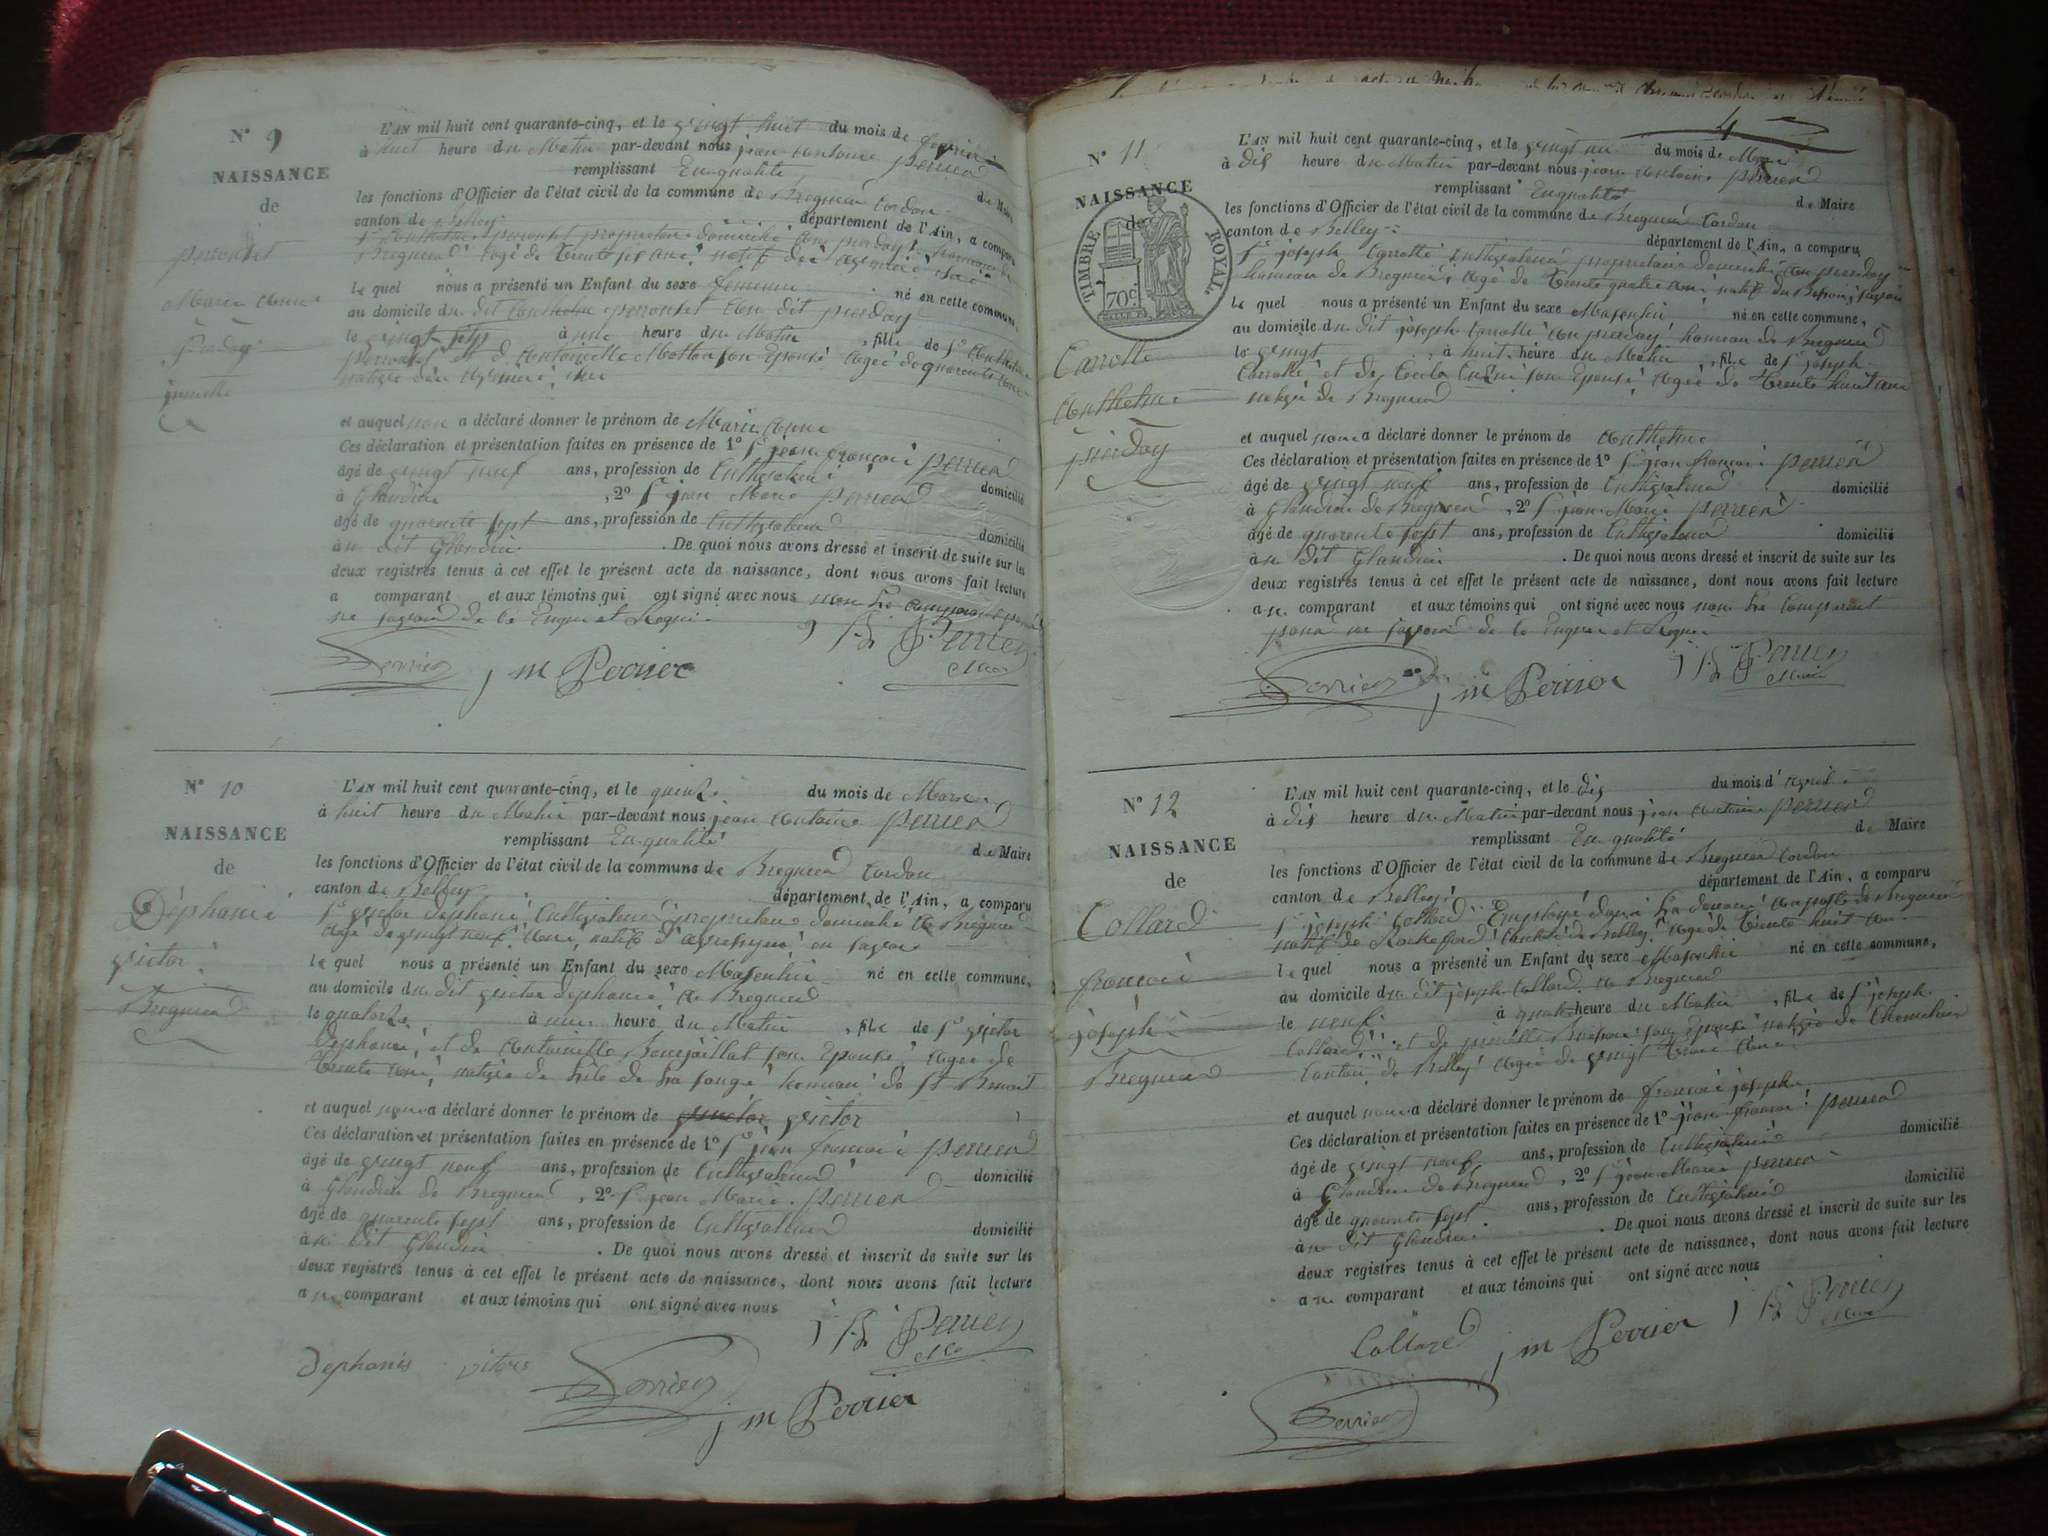 N° 9
NAISSANCE
de
perronet
Marie Anne
pierday
jumelle
L'AN mil huit cent quarante-cinq, et le vingt huit du mois de fevrier
à huit heure du Matin par-devant nous jean antoine perrier
remplissant En qualité de Maire
les fonctions d'Officier de l'état civil de la commune de Bregnier Cordon
canton de Belley département de l'Ain, a comparu
Sr Anthelme perronet proprietaire domicilié au pierday hameau de
Bregnier agé de trente
le quel nous a présenté un Enfant du sexe feminin né en cette commune,
au domicile du dit Anthelme perronet au dit pierday
le vingt sept à une heure du Matin, fille de Sr Anthelme
perronet et d Antoinette son Epouse agée de quarente
et auquel nous a déclaré donner le prénom de Marie Anne
Ces déclaration et présentation faites en présence de 1° Sr jean françois perrier
âgé de vingt neuf ans, profession de Cultivateur domicilié
à Glandieu, 2° Sr jean Marie perrier
âgé de quarente sept ans, profession de Cultivateur domicilié
au dit Glandieu. De quoi nous avons dressé et inscrit de suite sur les
deux registres tenus à cet effet le présent acte de naissance, dont nous avons fait lecture
a comparant et aux témoins qui ont signé avec nous non le comparant pour
ne savoir de ce Enquis et Requis
Perrier j m Perrier j A Perrier
Maire
N° 10
NAISSANCE
de
Dephanis
victor
Bregnier
L'AN mil huit cent quarante-cinq, et le quinze du mois de Mars
à huit heure du Matin par-devant nous jean antoine perrier
remplissant En qualité de Maire
les fonctions d'Officier de l'état civil de la commune de Bregnier Cordon
canton de Belley département de l'Ain, a comparu
Sr victor Dephanis Cultivateur proprietaire domicilié à Bregnier
agé de vingt neuf ans, natif d'avressieux en savoie
le quel nous a présenté un Enfant du sexe Masculin né en cette commune,
au domicile du dit victor dephanis à Bregnier
le quatorze à une heure du Matin, fils de Sr victor
Dephanis, et de antoinette son Epouse, agée de
trente ans, native de hameau de St Benoit
et auquel nous a déclaré donner le prénom de victor
Ces déclaration et présentation faites en présence de 1° Sr jean francois perrier
âgé de vingt neuf ans, profession de Cultivateur domicilié
à Glandieu de Bregnier, 2° Sr jean Marie perrier
âgé de quarente sept ans, profession de Cultivateur domicilié
au dit Glandieu. De quoi nous avons dressé et inscrit de suite sur les
deux registres tenus à cet effet le présent acte de naissance, dont nous avons fait lecture
au comparant et aux témoins qui ont signé avec nous
j A Perrier
Dephanis vitors Perrier
j m Perrier
4
N° 11
NAISSANCE
de
TIMBRE ROYAL
70c
Carrotte
Anthelme
pierday
L'AN mil huit cent quarante-cinq, et le vingt un du mois de Mars
à dix heure du Matin par-devant nous jean antoine perrier
remplissant En qualité de Maire
les fonctions d'Officier de l'état civil de la commune de Bregnier Cordon
canton de Belley département de l'Ain, a comparu
Sr joseph Carrotte Cultivateur proprietaire domicilié au pierday
hameau de Bregnier, agé de trente quatre ans natif du
le quel nous a présenté un Enfant du sexe Masculin né en cette commune,
au domicile du dit joseph Carrotte au pierday hameau de Bregnier
le vingt à huit heure du Matin, fils de Sr joseph
Carrotte et de Cecile son Epouse agée de trente huit ans
native de Bregnier
et auquel nous a déclaré donner le prénom de Anthelme
Ces déclaration et présentation faites en présence de 1° Sr jean francois perrier
âgé de vingt neuf ans, profession de Cultivateur domicilié
à Glandieu de Bregnier, 2° Sr jean Marie perrier
âgé de quarente sept ans, profession de Cultivateur domicilié
au dit Glandieu. De quoi nous avons dressé et inscrit de suite sur les
deux registres tenus à cet effet le présent acte de naissance, dont nous avons fait lecture
au comparant et aux témoins qui ont signé avec nous non le Comparant
pour ne savoir de ce Enquis et Requis
Perrier j m Perrier j A Perrier
Maire
N° 12
NAISSANCE
de
Collard
francois
joseph
Bregnier
L'AN mil huit cent quarante-cinq, et le dix du mois d'avril
à dix heure du Matin par-devant nous jean antoine perrier
remplissant En qualité de Maire
les fonctions d'Officier de l'état civil de la commune de Bregnier Cordon
canton de Belley département de l'Ain, a comparu
Sr joseph Collard Employé dans la douane au poste de Bregnier
natif de Rochefort Canton de Belley, agé de trente huit ans
le quel nous a présenté un Enfant du sexe Masculin né en cette commune,
au domicile du dit joseph Collard à Bregnier
le neuf à quatre heure du Matin, fils de Sr joseph
Collard et de son épouse native de
Canton de Belley agée de vingt trois ans
et auquel nous a déclaré donner le prénom de francois joseph
Ces déclaration et présentation faites en présence de 1° jean francois perrier
âgé de vingt neuf ans, profession de Cultivateur domicilié
à Glandieu de Bregnier, 2° Sr jean Marie perrier
âgé de quarente sept ans, profession de Cultivateur domicilié
au dit Glandieu. De quoi nous avons dressé et inscrit de suite sur les
deux registres tenus à cet effet le présent acte de naissance, dont nous avons fait lecture
au comparant et aux témoins qui ont signé avec nous
Collard j m Perrier j A Perrier
Maire
Perrier